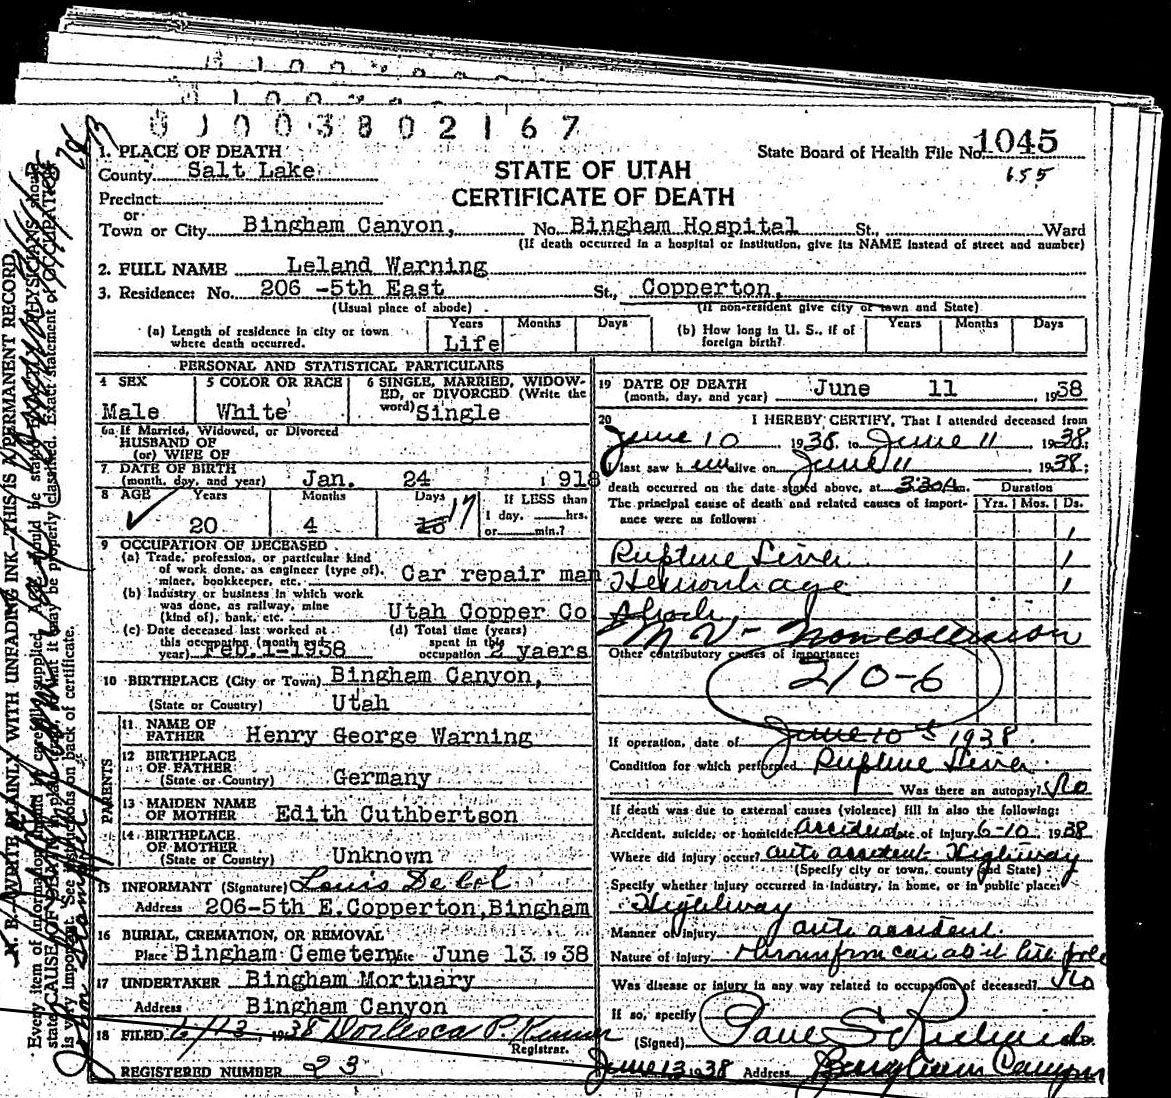 0 1 0 0 3 8 0 2 1 6 7
1. PLACE OF DEATH
State Board of Health File No. 1045
655
County Salt Lake
STATE OF UTAH
CERTIFICATE OF DEATH
Precinct
or
Town or City Bingham Canyon, No. Bingham Hospital St., Ward
(If death occurred in a hospital or institution, give its NAME instead of street and number)
2. FULL NAME Leland Warning
3. Residence: No. 206 -5th East St., Copperton,
(Usual place of abode) (If non-resident give city or town and State)
(a) Length of residence in city or town where death occurred. Years Months Days
Life
(b) How long in U. S., if of foreign birth? Years Months Days
PERSONAL AND STATISTICAL PARTICULARS
4 SEX
Male
5 COLOR OR RACE
White
6 SINGLE, MARRIED, WIDOW-
ED, or DIVORCED (Write the
word) Single
6a If Married, Widowed, or Divorced
HUSBAND OF
(or) WIFE OF
7 DATE OF BIRTH
(month, day, and year) Jan. 24 1918
8 AGE Years Months Days If LESS than
1 day, hrs.
or min.?
20 4 17
9 OCCUPATION OF DECEASED
(a) Trade, profession, or particular kind
of work done, as engineer (type of),
miner, bookkeeper, etc. Car repair man
(b) Industry or business in which work
was done, as railway, mine
(kind of), bank, etc. Utah Copper Co
(c) Date deceased last worked at
this occupation (month and
year) Feb. 1-1938
(d) Total time (years)
spent in this
occupation 2 yaers
10 BIRTHPLACE (City or Town) Bingham Canyon,
(State or Country) Utah
PARENTS
11 NAME OF
FATHER Henry George Warning
12 BIRTHPLACE
OF FATHER
(State or Country) Germany
13 MAIDEN NAME
OF MOTHER Edith Cuthbertson
14 BIRTHPLACE
OF MOTHER
(State or Country) Unknown
15 INFORMANT (Signature) Louis De Col
Address 206-5th E.Copperton,Bingham
16 BURIAL, CREMATION, OR REMOVAL
Place Bingham Cemetery Date June 13 1938
17 UNDERTAKER Bingham Mortuary
Address Bingham Canyon
18 FILED 6/13, 1938
Registrar.
REGISTERED NUMBER 23
19 DATE OF DEATH
(month, day, and year) June 11 1938
20 I HEREBY CERTIFY, That I attended deceased from
June 10 1938 to June 11 1938;
I last saw him alive on June 11 1938;
death occurred on the date stated above, at 3:30A m.
Duration
The principal cause of death and related causes of import-
ance were as follows:
Yrs. Mos. Ds.
Rupture Liver 1
Hemorrhage 1
Shock 1
M V - Noncollision
Other contributory causes of importance:
210-6
If operation, date of June 10th 1938
Condition for which performed Rupture Liver
Was there an autopsy? No
If death was due to external causes (violence) fill in also the following:
Accident, suicide, or homicide accident Date of injury 6-10 1938
Where did injury occur? auto accident Highway
(Specify city or town, county and State)
Specify whether injury occurred in industry, in home, or in public place:
Highway
Manner of injury auto accident
Nature of injury thrown from car
Was disease or injury in any way related to occupation of deceased? No
If so, specify
(Signed) Paul S. Richards
June 13 1938 Address Bingham Canyon
N. B. WRITE PLAINLY WITH UNFADING INK—THIS IS A PERMANENT RECORD.